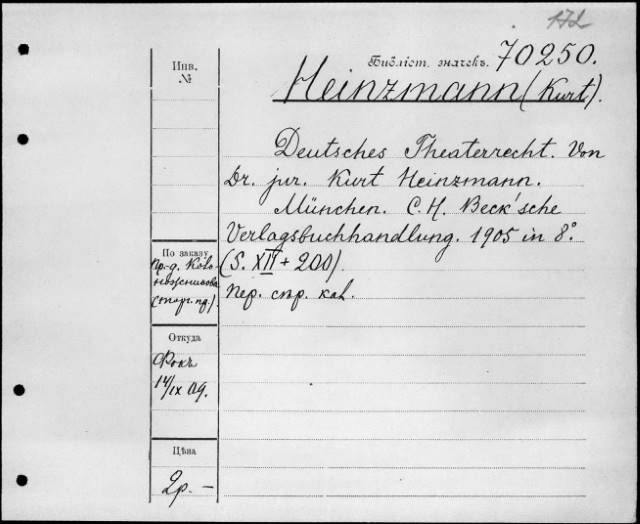 172
Библіот. значекъ. 70250.
Инв.
№
Heinzmann (Kurt).
Deutsches Theaterrecht. Von
Dr. jur. Kurt Heinzmann.
München. C. H. Beck'sche
Verlagsbuchhandlung. 1905 in 8°.
(S. XII + 200).
По заказу
пр-д.
Пер. кал.
Откуда
Фокъ
14/IX 09.
Цѣна
2р. –